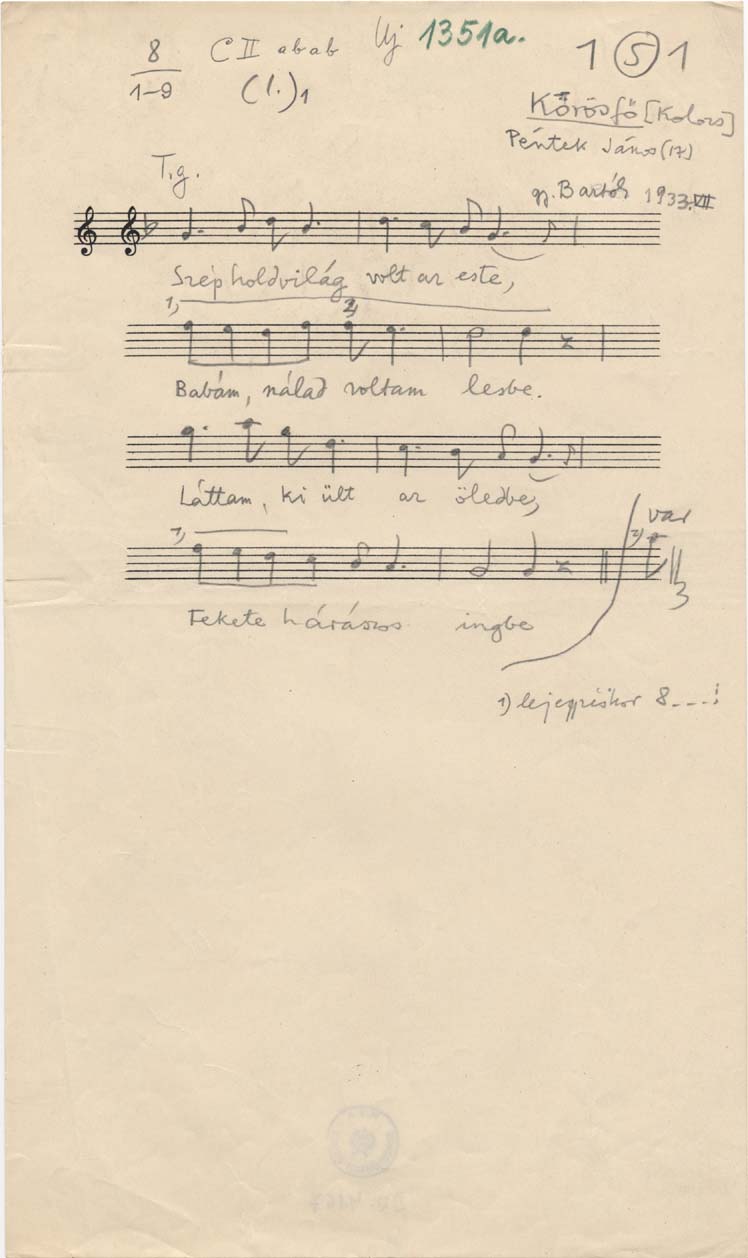 8 C II abab Uj 1351a. 1 5 1
1-9 (1.)1
Kőrösfő [Kolozs]
Péntek János (17)
T.g.
gy. Bartók 1933.VII
Szép holdvilág volt az este,
1) 2)
Babám, nálad voltam lesbe.
Láttam, ki ült az öledbe,
1) 2) var
Fekete hárászos ingbe
3
1) lejegyzéskor 8---!